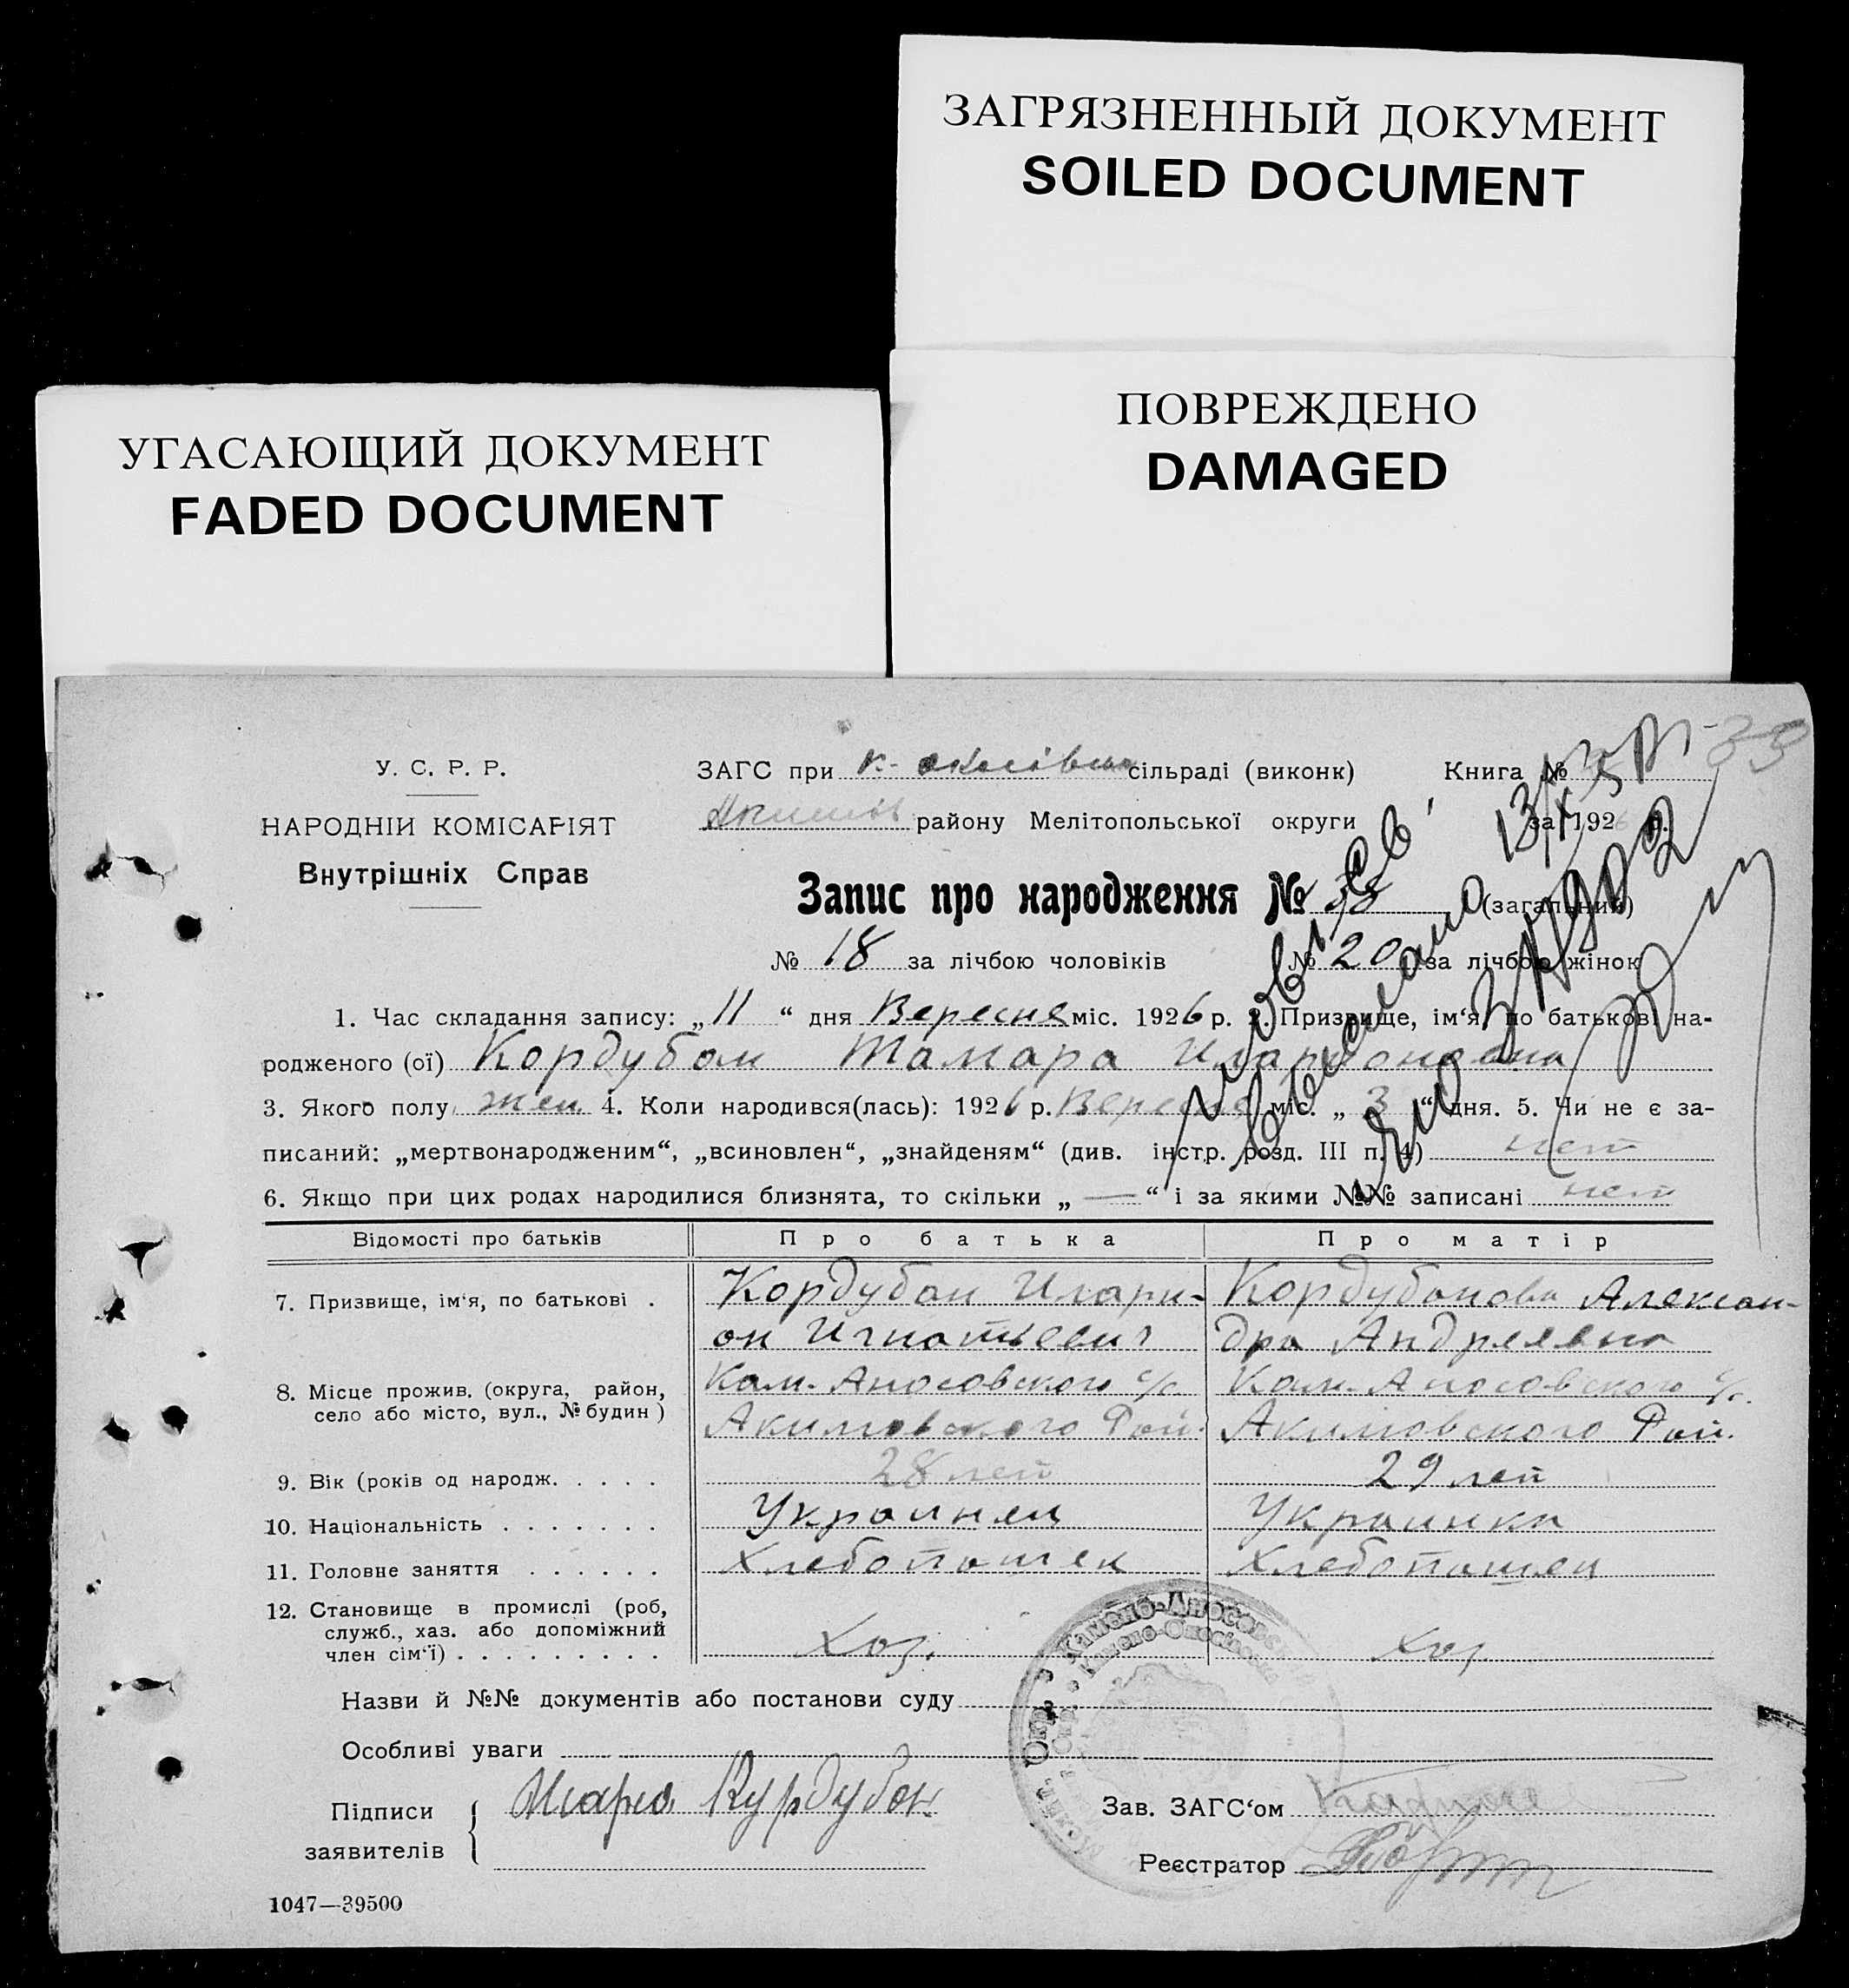 ЗАГРЯЗНЕННЫЙ ДОКУМЕНТ
SOILED DOCUMENT
ПОВРЕЖДЕНО
DAMAGED
УГАСАЮЩИЙ ДОКУМЕНТ
FADED DOCUMENT
У. С. Р. Р.
НАРОДНІИ КОМІСАРІЯТ
Внутрішніх Справ
ЗАГС при сільраді (виконк) Книга №
району Мелітопольської округи за 1926 р.
Запис про народження № 38 (загальний)
№ 18 за лічбою чоловіків № 20 за лічбою жінок
1. Час складання запису: „11“ дня Вересня міс. 1926 р. 2. Призвище, ім‘я, по батькові на-
родженого (ої) Кордубан Тамара Иларионовна
3. Якого полу жен. 4. Коли народився(лась): 1926 р. Вересня міс. „3“ дня. 5. Чи не є за-
писаний: „мертвонародженим“, „всиновлен“, „знайденям“ (див. інстр. розд. III п. 4) нет
6. Якщо при цих родах народилися близнята, то скільки „—“ і за якими №№ записані нет
Відомості про батьків Про батька Про матір
7. Призвище, ім‘я, по батькові . Кордубан Илари- Кордубанова Алексан-
он Игнатьевич дра Андреевна
8. Місце прожив. (округа, район, село або місто, вул., № будин) Кам.-Аносовского с/с Кам.-Аносовского с/с.
Акимовского Рай. Акимовского Рай.
9. Вік (років од народж. . . . . 28 лет 29 лет
10. Національність . . . . . . . Украинец Украинка
11. Головне заняття . . . . . . Хлебопашец Хлебопашец
12. Становище в промислі (роб, служб., хаз. або допоміжний член сім‘ї) . . . . . . . . . Хоз. Хоз.
Назви й №№ документів або постанови суду
Особливі уваги
Підписи заявителів Кордубон
Зав. ЗАГС‘ом
Реєстратор
1047—39500